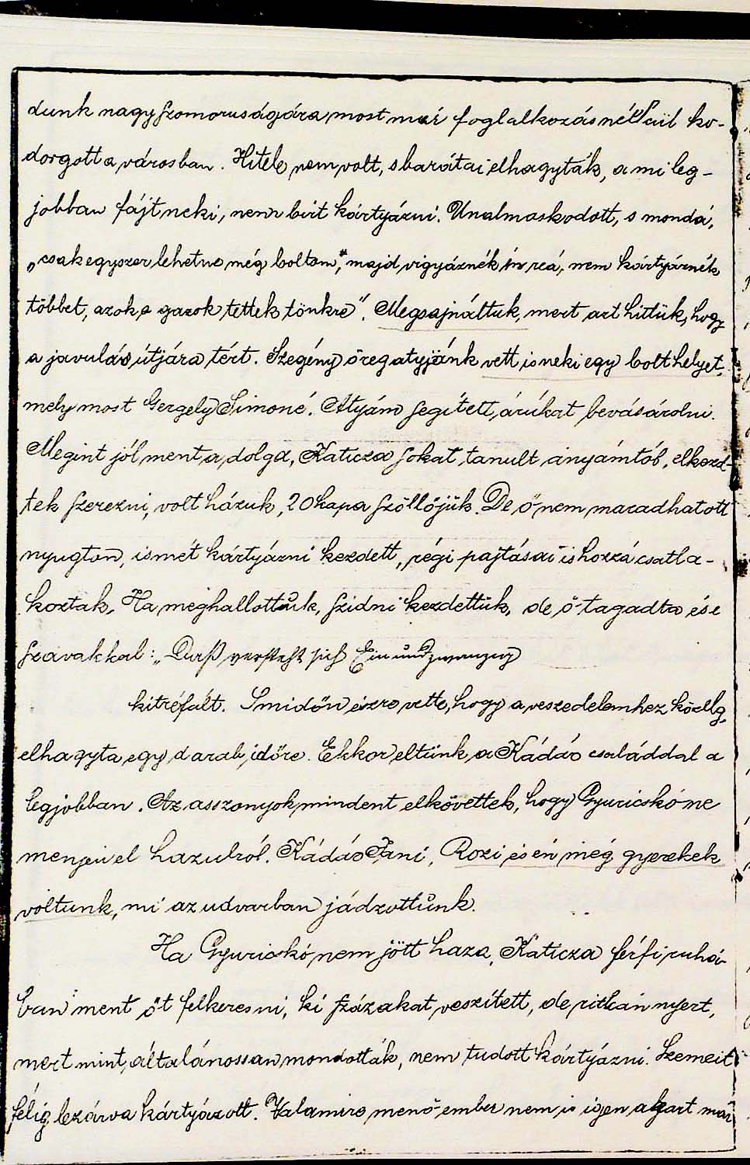 dunk nagy szomoruságára most már foglalkozás nélkül ko-
dorgott a városban. Hitele nem volt, s barátai elhagyták, a mi leg-
jobban fájt neki, nem birt kártyázni. Unalmaskodott, s mondá,
„csak egyszer lehetne még boltom," majd vigyáznék én reá, nem kártyáznék
többet, azok a gazok tettek tönkre". Megsajnáltuk, mert azt hittük, hogy
a javulás útjára tért. Szegény öreg atyjánk vett is neki egy bolt helyet,
mely most Gergely Simoné. Atyám segitett, árúkat bevásárolni.
Megint jól ment a dolga, Katicza sokat tanult anyámtól, elkezd-
tek szerezni, volt házuk, 20 kapa szöllőjük. De ő nem maradhatott
nyugton, ismét kártyázni kezdett, régi pajtásai is hozzá csatla-
koztak. Ha meghallottuk, szidni kezdettük, de ő tagadta és e
szavakkal: „Daß versteht sich Einundzwanzig
kitréfált. S midőn észre vette, hogy a veszedelemhez közelg,
elhagyta egy darab időre. Ekkor éltünk a Kádár családdal a
legjobban. Az asszonyok mindent elkövettek, hogy Gyuricskó ne
menjen el hazulról. Kádár Fani, Rozi, és én még gyerekek
voltunk, mi az udvarban jádzottunk.
Ha Gyuricskó nem jött haza, Katicza férfi ruhá-
ban ment őt felkeresni, ki százakat veszitett, de ritkán nyert,
mert mint általánossan mondották, nem tudott kártyázni. Szemeit
félig lezárva kártyázott. Valamire menő ember nem is igen akart már